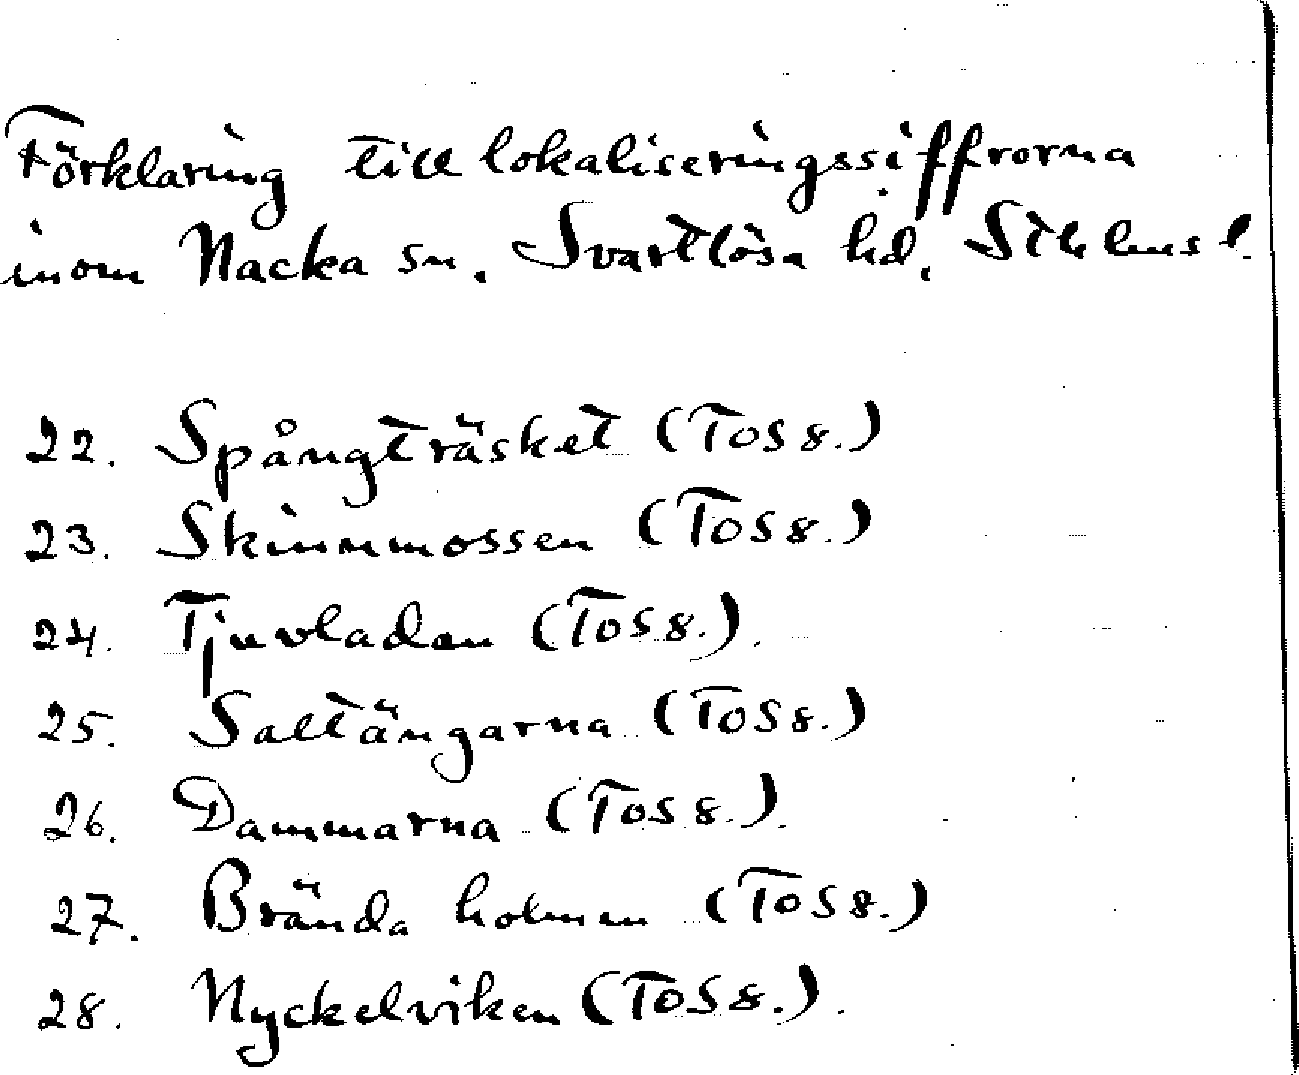 Förklaring till lokaliseringssiffrorna
inom Nacka sn. Svartlösa hd. Sthlms l.
22. Spångträsket (TOS 8.)
23. Skinnmossen (TOS 8.)
24. Tjuvladan (TOS 8.).
25. Saltängarna (TOS 8.)
26. Dammarna (TOS 8.).
27. Brända holmen (TOS 8.)
28. Nyckelviken (TOS 8.).